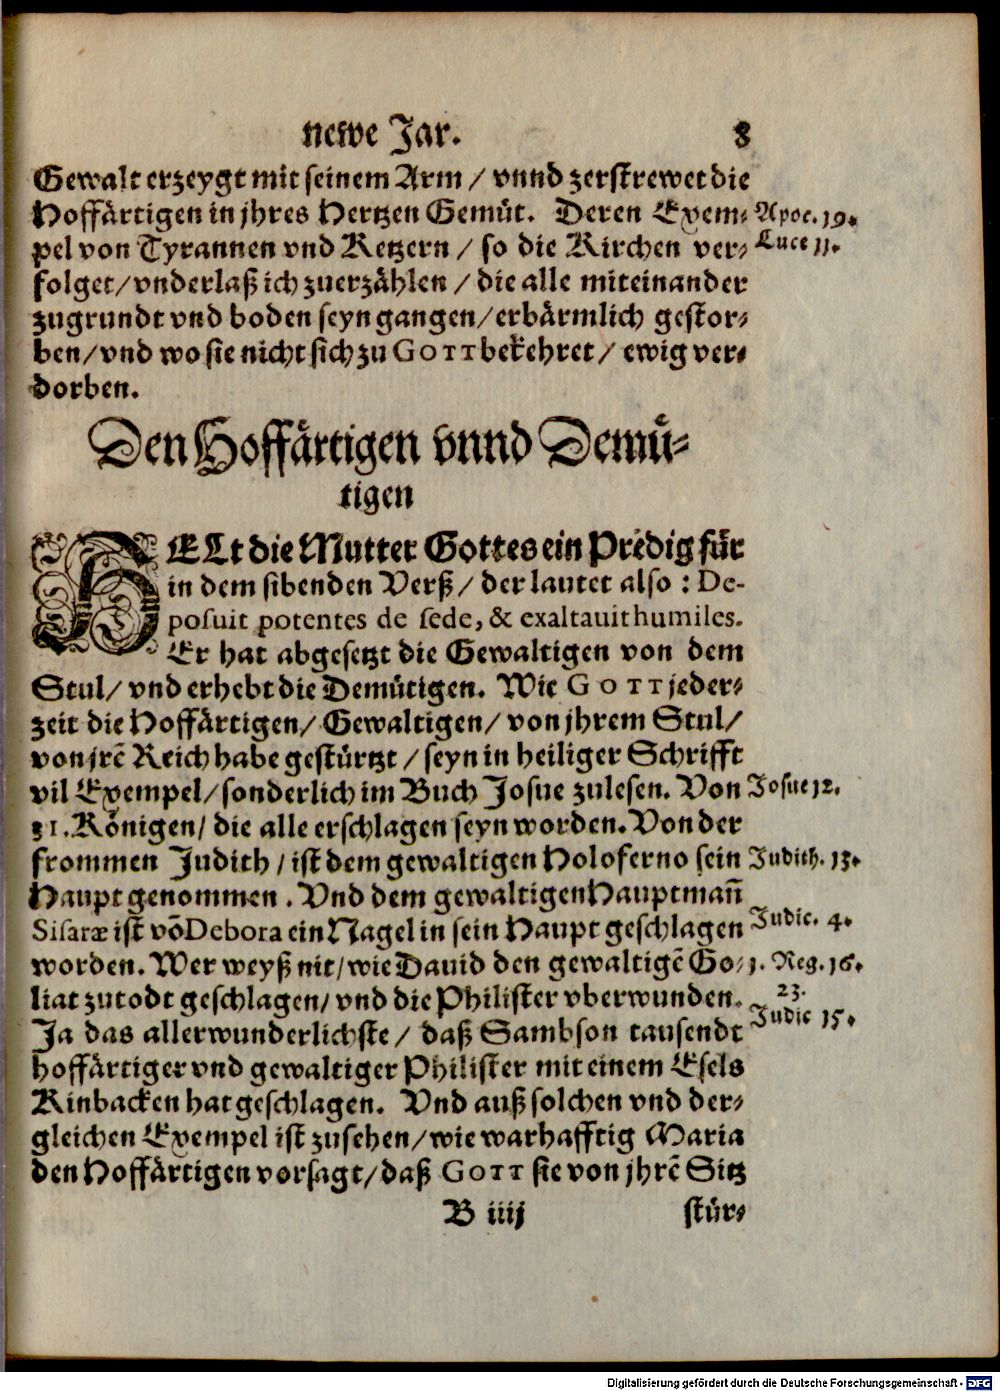 newe Jar. 8
Gewalt erzeygt mit seinem Arm / vnnd zerstrewet die
Hoffärtigen in jhres Hertzen Gemüt. Deren Exem- Apoc. 19.
pel von Tyrannen vnd Ketzern / so die Kirchen ver- Luce 11.
folget / vnderlaß ich zuerzählen / die alle miteinander
zugrundt vnd boden seyn gangen / erbärmlich gestor-
ben / vnd wo sie nicht sich zu GOTT bekehret / ewig ver-
dorben.
Den Hoffärtigen vnnd Demü-
tigen
HELt die Mutter Gottes ein Predig für
in dem sibenden Verß / der lautet also : De-
posuit potentes de sede, & exaltauit humiles.
Er hat abgesetzt die Gewaltigen von dem
Stul / vnd erhebt die Demütigen. Wie GOTT jeder-
zeit die Hoffärtigen / Gewaltigen / von jhrem Stul /
von jrẽ Reich habe gestürtzt / seyn in heiliger Schrifft
vil Exempel / sonderlich im Buch Josue zulesen. Von Josue 12.
31. Königen / die alle erschlagen seyn worden. Von der
frommen Judith / ist dem gewaltigen Holoferno sein Judith. 13.
Haupt genommen. Vnd dem gewaltigen Hauptmañ
Sisaræ ist võ Debora ein Nagel in sein Haupt geschlagen Judic. 4.
worden. Wer weyß nit / wie Dauid den gewaltigẽ Go- 1. Reg. 16.
liat zutodt geschlagen / vnd die Philister vberwunden. 23.
Ja das allerwunderlichste / daß Sambson tausendt Judic 15.
hoffärtiger vnd gewaltiger Philister mit einem Esels
Kinbacken hat geschlagen. Vnd auß solchen vnd der-
gleichen Exempel ist zusehen / wie warhafftig Maria
den Hoffärtigen vorsagt / daß GOTT sie von jhrẽ Sitz
B iiij stür-
Digitalisierung gefördert durch die Deutsche Forschungsgemeinschaft - DFG